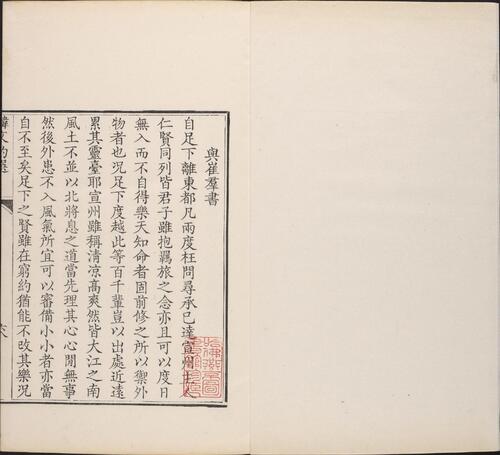 與崔羣書
自足下離東都凡兩度枉問尋承已達宣州主人
仁賢同列皆君子雖抱羇旅之念亦且可以度日
無入而不自得樂天知命者固前修之所以禦外
物者也況足下度越此等百千輩豈以出處近遠
累其靈臺耶宣州雖稱清涼高爽然皆大江之南
風土不並以北將息之道當先理其心心閒無事
然後外患不入風氣所宜可以審備小小者亦當
自不至矣足下之賢雖在窮約猶能不改其樂況